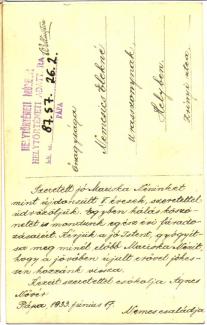 HELYTÖRTÉNETI
87.57. 26.2.
PÁPA
Őnagysága
Nemesics Elekné
úrasszonynak
Helyben
Zrínyi utca
Szeretett jó Mariska Néninket
mint újdonsült V. évesek, szeretettel
üdvözöljük. Egyben hálás köszö-
netet is mondunk egész évi fárado-
zásaiért. Kérjük a jó Istent, gyógyít-
sa meg minél előbb Mariska Nénit,
hogy a jövőben újult erővel jöhes-
sen hozzánk vissza.
Kezeit szeretettel csókolja Ágnes
Nővér
Pápa, 1933. június 17.
Nemes családja